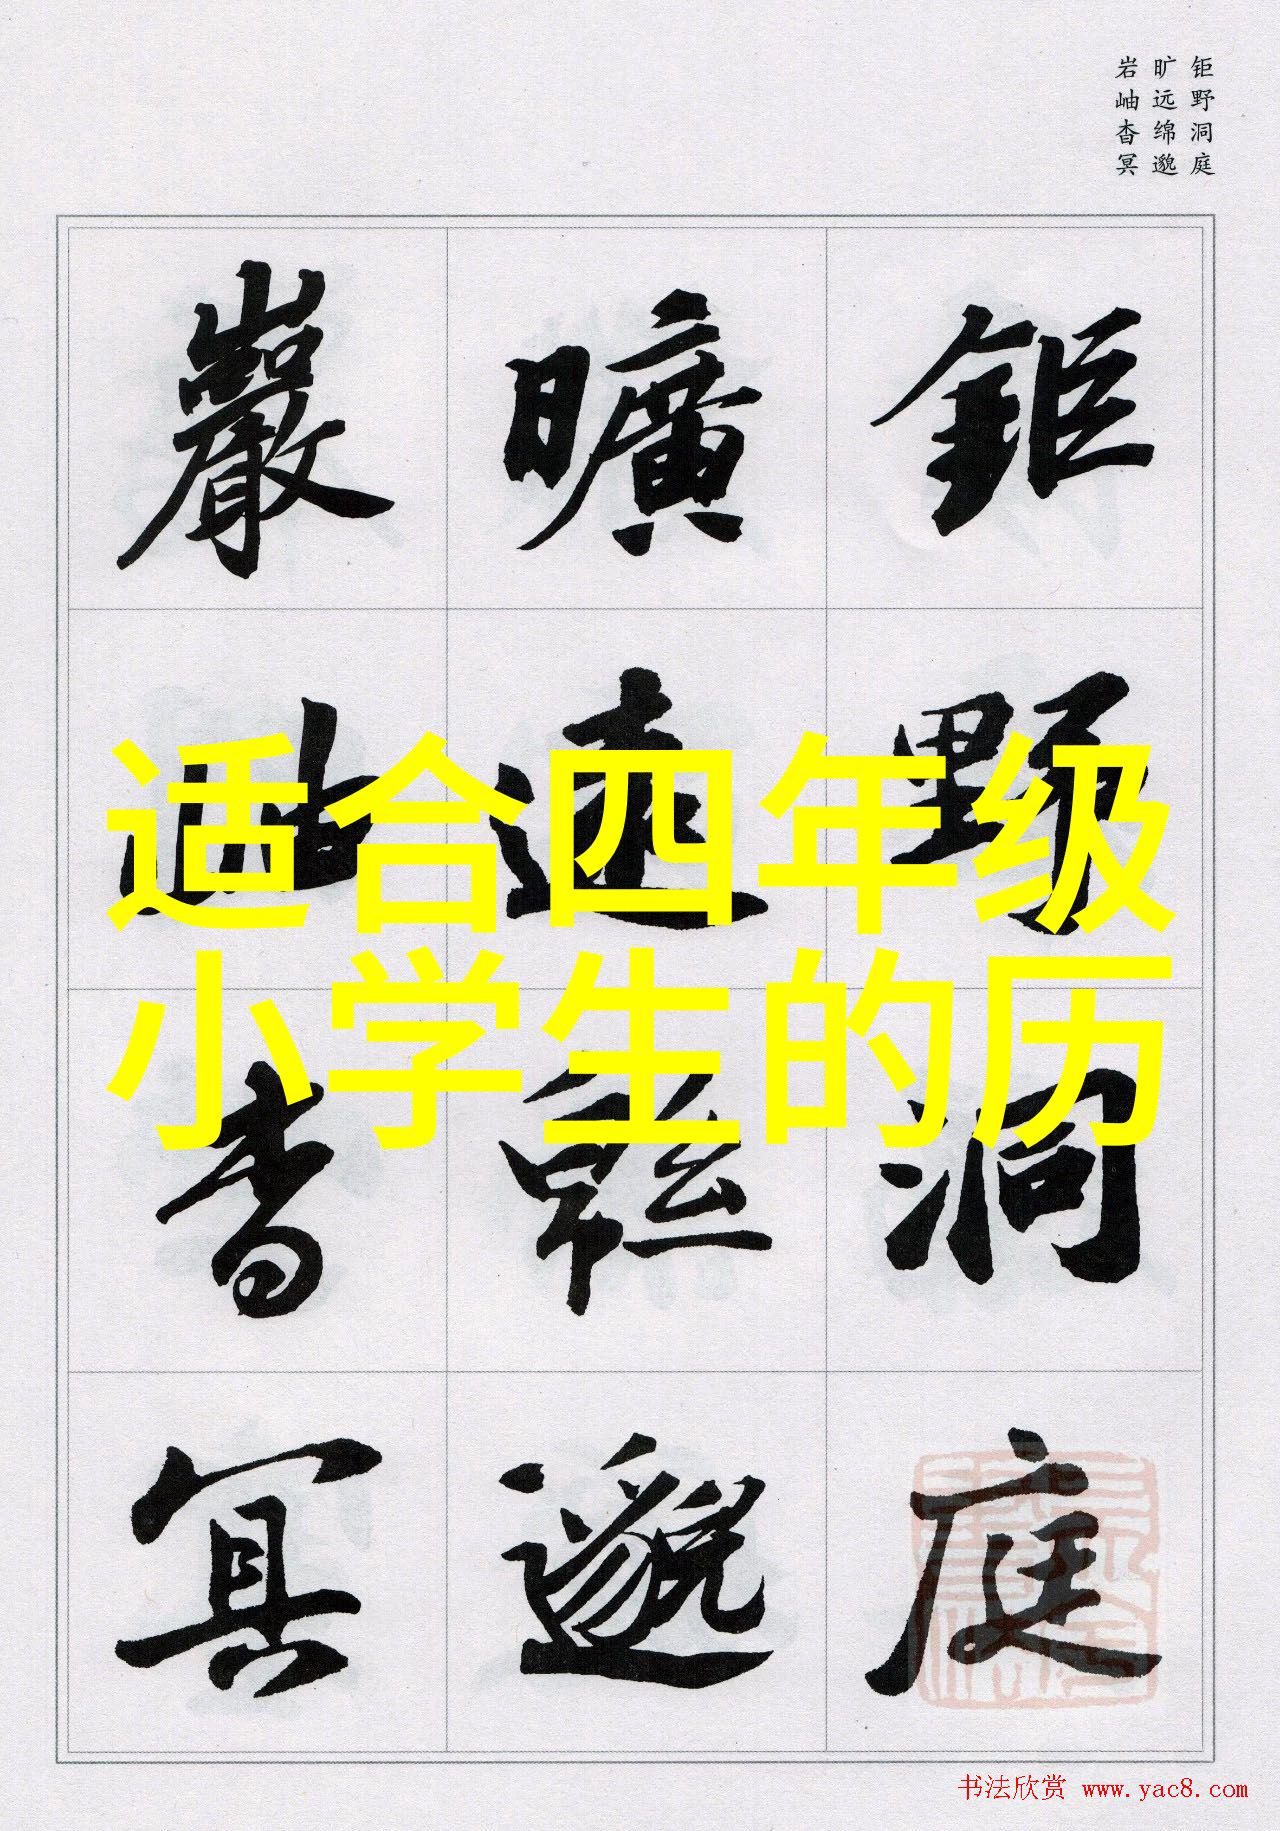 钜野洞庭
旷远绵邈
岩岫杳冥
鉅野洞庭
曠遠緜邈
巖岫杳冥
适合四年级
小学生的历
书法欣赏 www.yac8.com